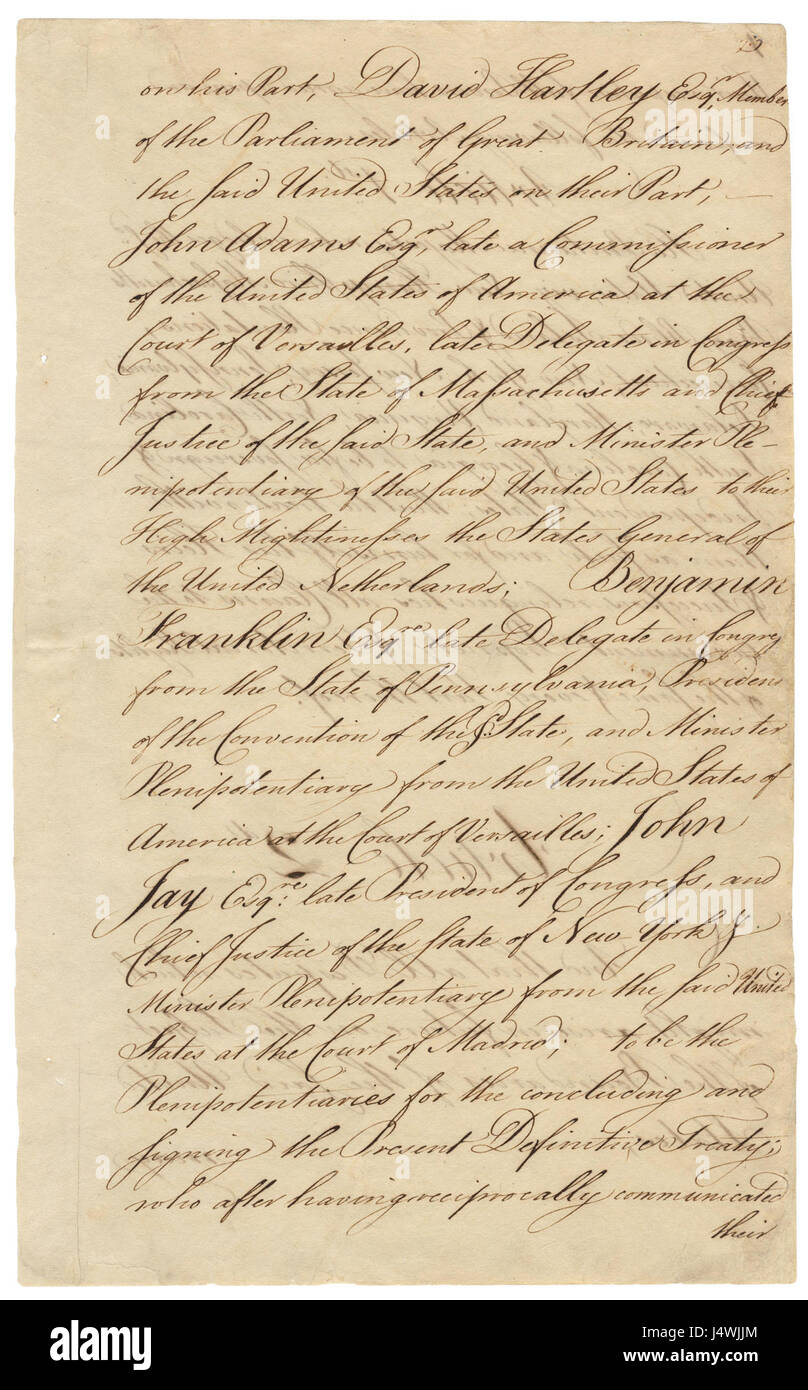 on his Part, David Hartley Esqr., Member
of the Parliament of Great Britain, and
the said United States on their Part, —
John Adams Esqr., late a Commissioner
of the United States of America at the
Court of Versailles, late Delegate in Congress
from the State of Massachusetts and Chief
Justice of the said State, and Minister Ple-
nipotentiary of the said United States to their
High Mightinesses the States General of
the United Netherlands; Benjamin
Franklin Esqre. late Delegate in Congress
from the State of Pennsylvania, President
of the Convention of the sd. State, and Minister
Plenipotentiary from the United States of
America at the Court of Versailles; John
Jay Esqre. late President of Congress, and
Chief Justice of the State of New-York &
Minister Plenipotentiary from the said United
States at the Court of Madrid; to be the
Plenipotentiaries for the concluding and
signing the Present Definitive Treaty;
who after having reciprocally communicated
their
alamy
alamy
Image ID: J4WJJM
www.alamy.com